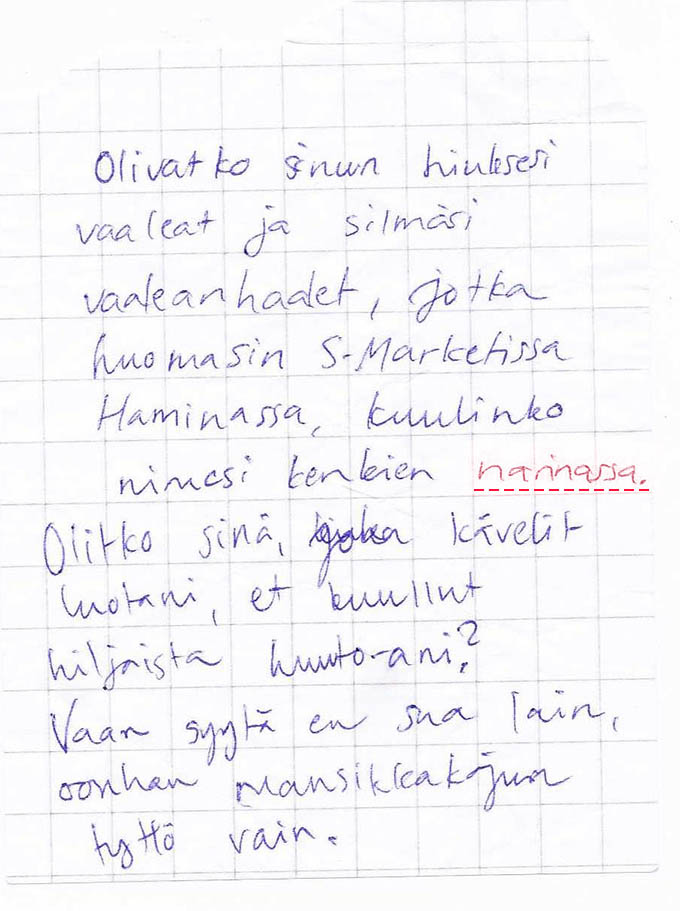 Olivatko sinun hiuksesi
vaaleat ja silmäsi
vaaleanhadet, jotka
huomasin S-Marketissa
Haminassa, kuulinko
nimesi kenkien narinassa.
Olitko sinä, joka kävelit
luotani, et kuullut
hiljaista huuto-ani?
Vaan syytä en sua lain,
oonhan mansikkakojun
tyttö vain.